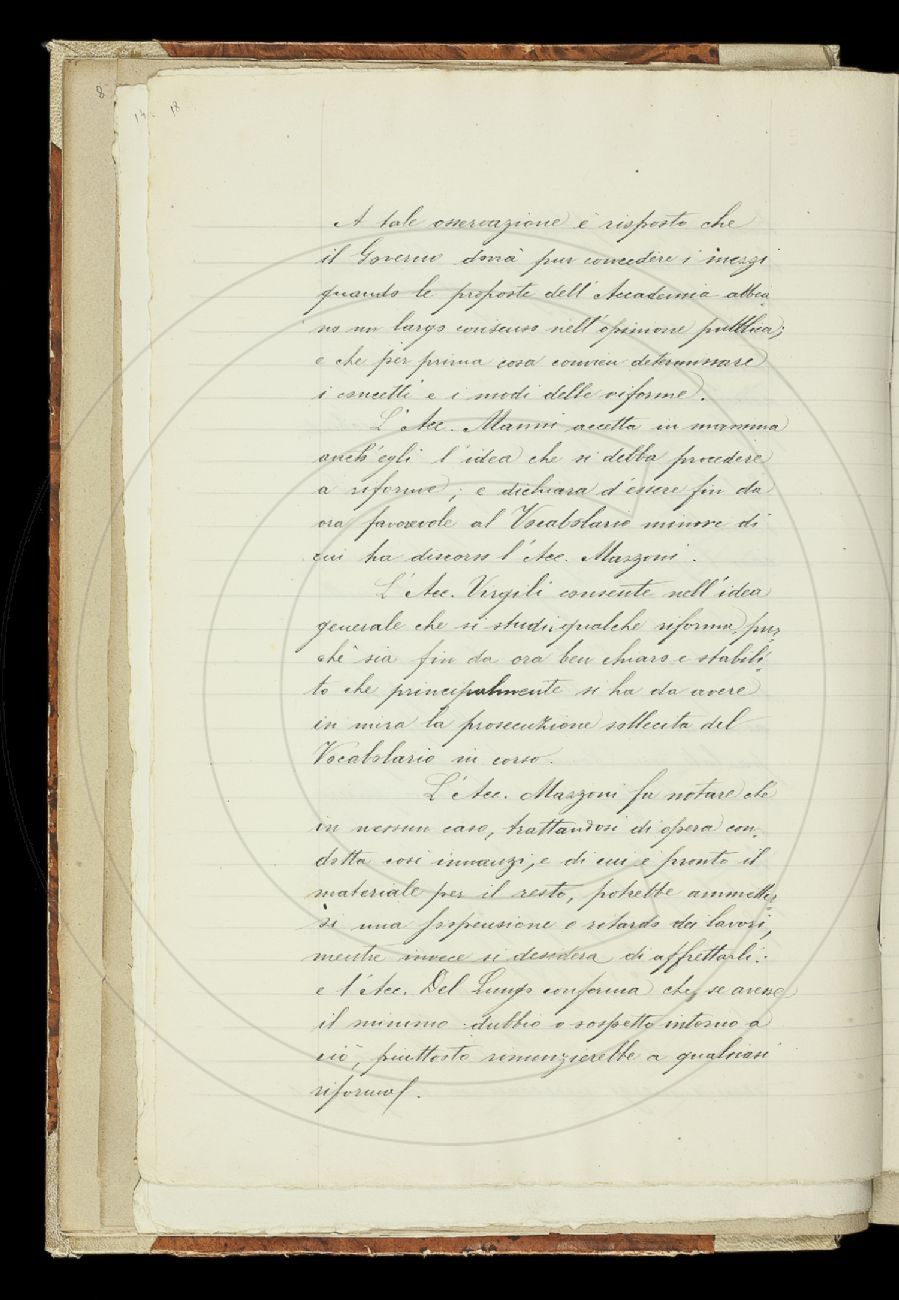 8
14
18
A tale osservazione è risposto che
il Governo dovrà pur concedere i mezzi
quando le proposte dell'Accademia abbia-
no un largo consenso nell'opinione pubblica;
e che per prima cosa convien determinare
i concetti e i modi delle riforme.
L'Acc. Manni accetta in massima
anch'egli l'idea che si debba procedere
a riforme; e dichiara d'essere fin da
ora favorevole al Vocabolario minore di
cui ha discorso l'Acc. Mazzoni.
L'Acc. Virgili consente nell'idea
generale che si studii qualche riforma, pur-
chè sia fin da ora ben chiaro e stabili-
to che principalmente si ha da avere
in mira la prosecuzione sollecita del
Vocabolario in corso.
L'Acc. Mazzoni fa notare che
in nessun caso, trattandosi di opera con-
dotta così innanzi, e di cui è pronto il
materiale per il resto, potrebbe ammetter-
si una sospensione o ritardo dei lavori,
mentre invece si desidera di affrettarli:
e l'Acc. Del Lungo conferma che, se avesse
il minimo dubbio o sospetto intorno a
ciò, piuttosto rinunzierebbe a qualsiasi
riforma.